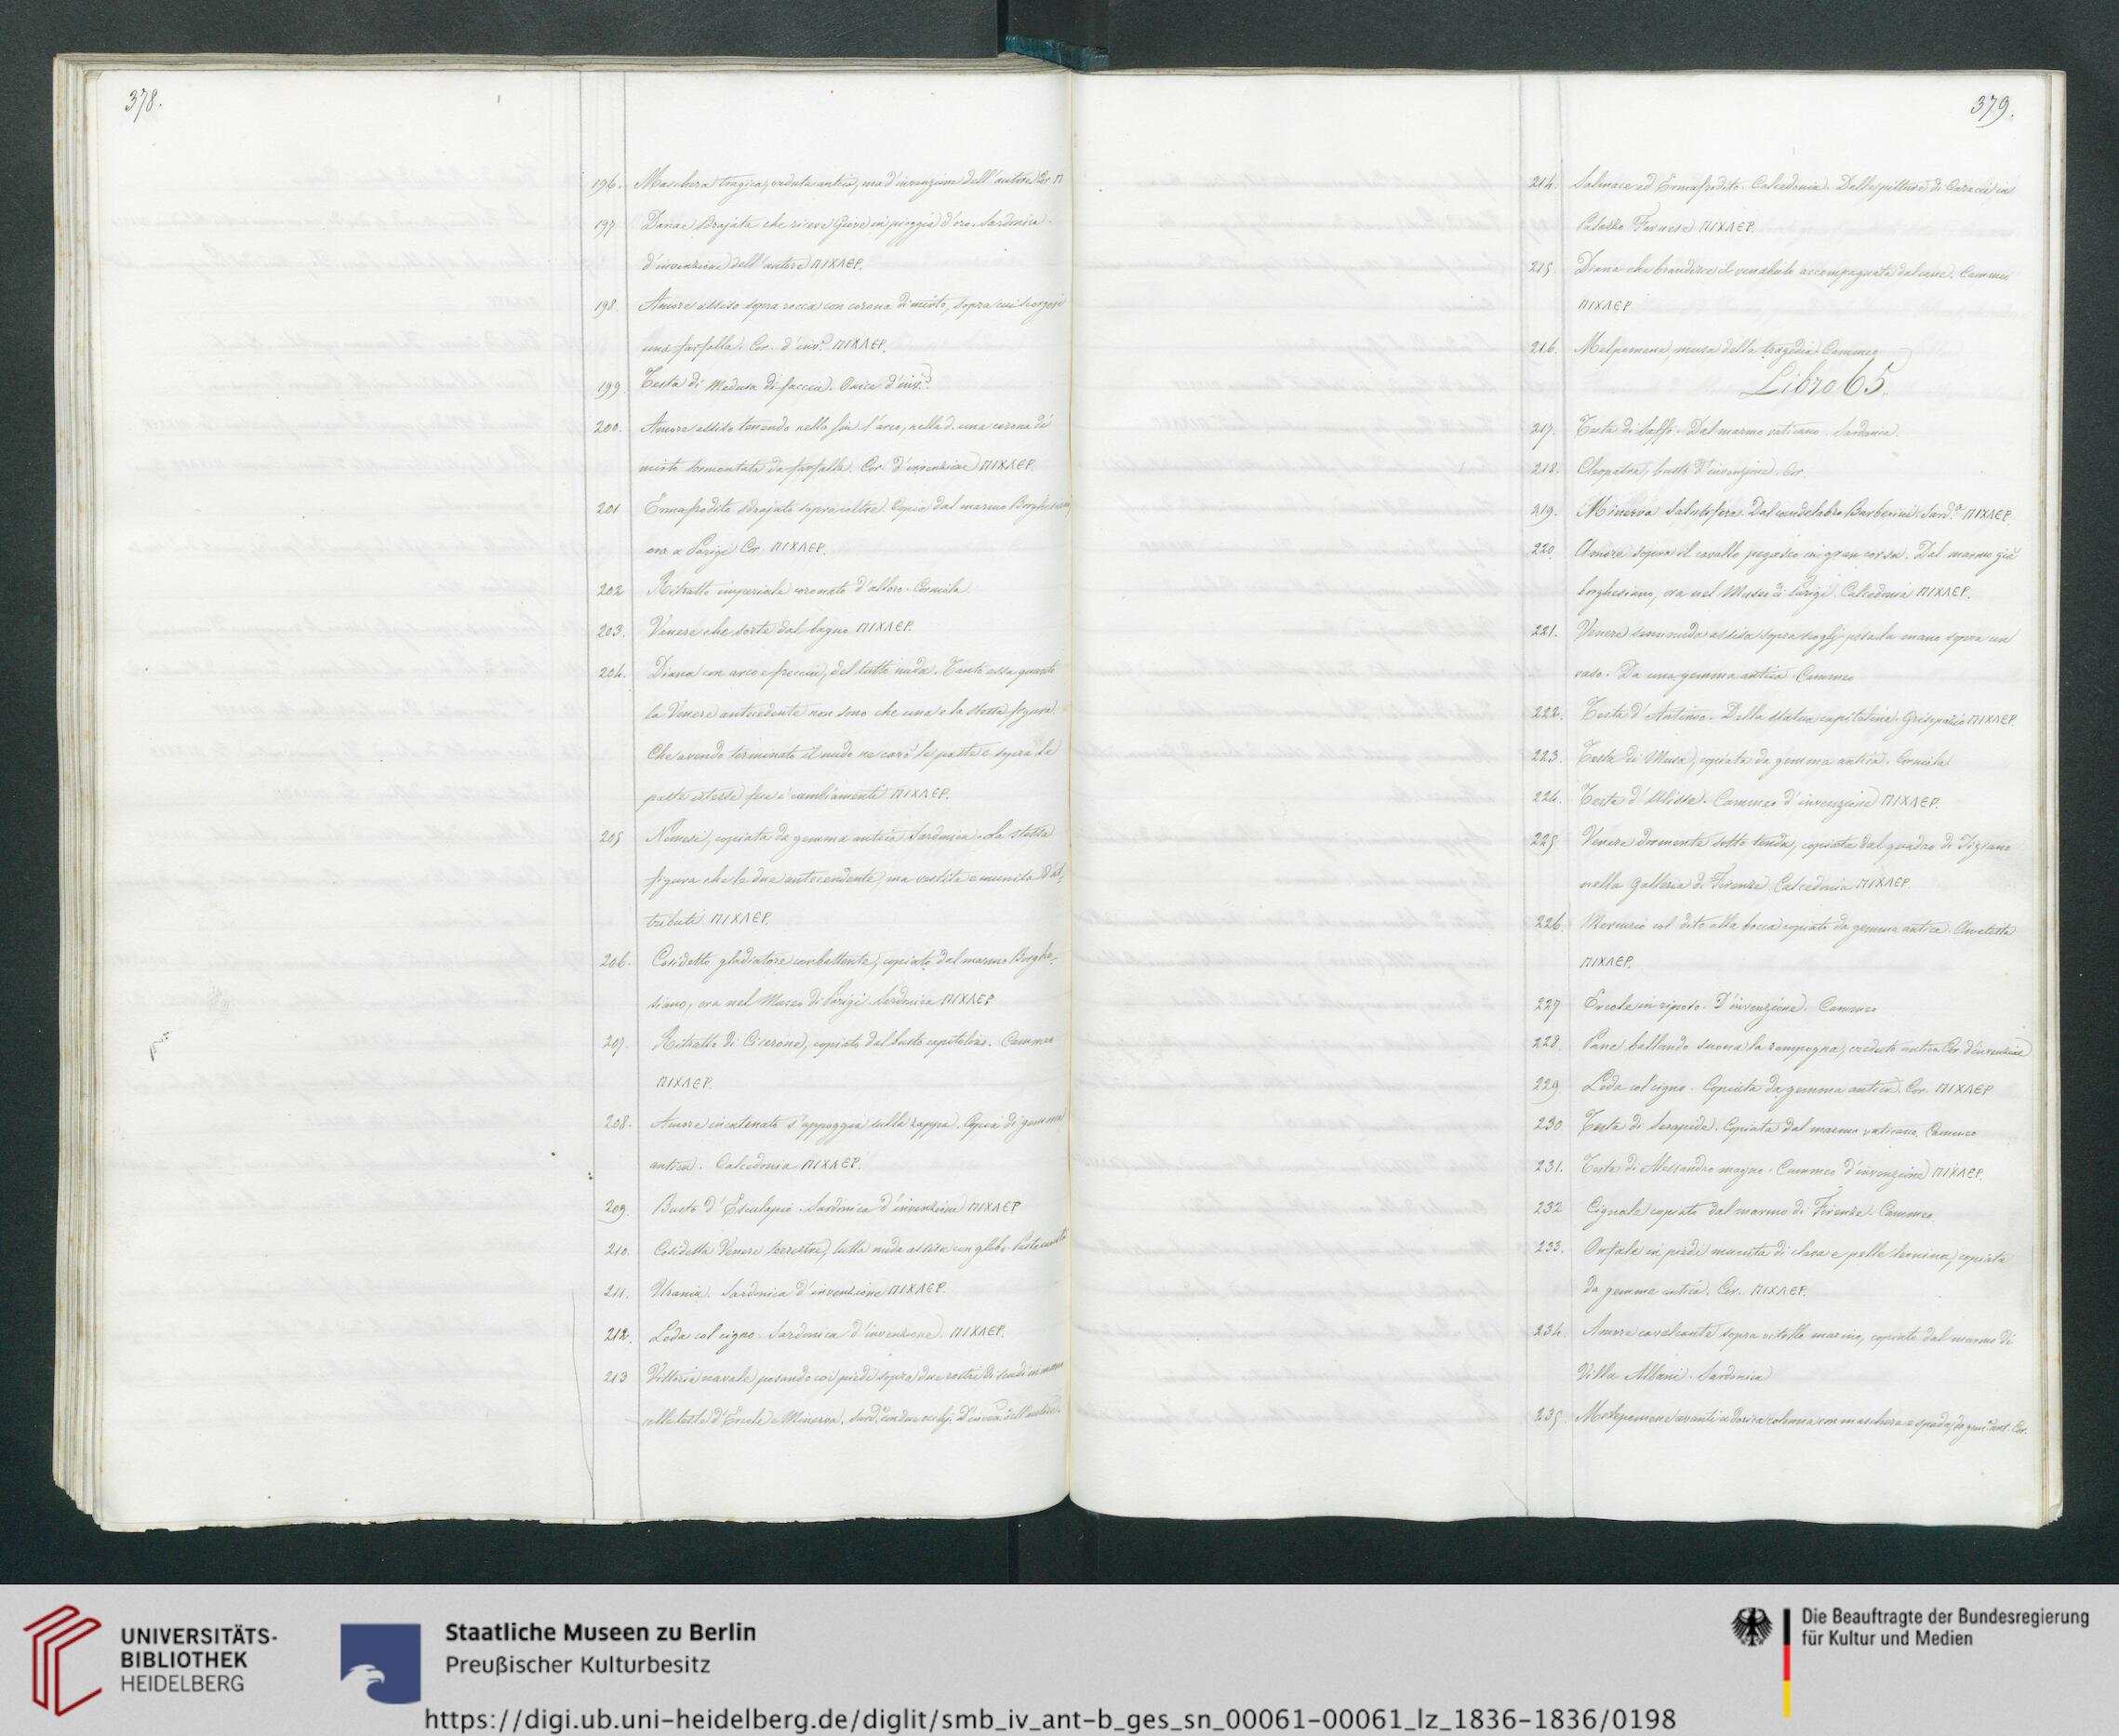 378.
196. Maschera tragica, creduta antica, ma d'invenzione dell'autore Cor. Π
197 Danae sdrajata che riceve Giove in pioggia d'oro. Sardonica.
d'invenzione dell'autore ΠΙΧΛΕΡ.
198. Amore assiso sopra rocca con corona di mirto, sopra cui
una farfalla. Cor. d'inv.e ΠΙΧΛΕΡ.
199 Testa di Medusa di faccia. Onice d'inv.e
200. Amore assiso tenendo nella sin. l'arco, nella d. una corona di
mirto tormentata da farfalla. Cor. d'invenzione ΠΙΧΛΕΡ.
201 Ermafrodito sdrajato sopra coltre. Copia dal marmo Borghesiano,
ora a Parigi Cor. ΠΙΧΛΕΡ.
202 Ritratto imperiale coronato d'alloro. Corniola.
203. Venere che sorte dal bagno ΠΙΧΛΕΡ.
204. Diana con arco e freccia, del tutto nuda. Tanto essa quanto
la Venere antecedente non sono che una e la stessa figura.
Che avendo terminato il nudo ne cavò le paste e sopra le
paste istesse fece i cambiamenti ΠΙΧΛΕΡ.
205 Nemesi, copiata da gemma antica Sardonica. La stessa
figura che le due antecendente, ma vestita e munita d'at,
tributi ΠΙΧΛΕΡ.
206. Cosidetto gladiatore combattente, copiato dal marmo Borghe,
siano, ora nel Museo di Parigi. Sardonica ΠΙΧΛΕΡ
207. Ritratto di Cicerone, copiato dal busto capitolino. Cammeo
ΠΙΧΛΕΡ.
208. Amore incatenato s'appoggia sulla zappa. Copia di gemma
antica. Calcedonia ΠΙΧΛΕΡ.
209. Busto d'Esculapio. Sardonica d'invenzione ΠΙΧΛΕΡ
210. Cosidetta Venere terrestre, tutta nuda assisa con globo.
211. Urania. Sardonica d'invenzione ΠΙΧΛΕΡ.
212. Leda col cigno. Sardonica d'invenzione. ΠΙΧΛΕΡ.
213 Vittoria navale posando coi piedi sopra due rostri di
colle teste d'Ercole e Minerva. Sard.a dell'autore.
379.
214. Salmace ed Ermafrodito. Calcedonia. Dalle pitture di Caracci in
Palazzo Farnese ΠΙΧΛΕΡ.
215. Diana che brandisce il venabulo accompagnata dal cane. Cammeo
ΠΙΧΛΕΡ
216. Melpomene, musa della tragedia. Cammeo
Libro 65.
217. Testa di Saffo. Dal marmo vaticano. Sardonica.
218. Cleopatra, busto d'invenzione. Cor.
219. Minerva Salutifera. Dal candelabro Barberini. Sard.a ΠΙΧΛΕΡ.
220 Amore sopra il cavallo pegaseo in gran corsa. Dal marmo già
borghesiano, ora nel Museo di Parigi. Calcedonia ΠΙΧΛΕΡ.
221. Venere seminuda assisa sopra scoglj posa la mano sopra un
vaso. Da una gemma antica. Cammeo
222. Testa d'Antinoo. Dalla statua capitolina. ΠΙΧΛΕΡ.
223. Testa di Musa, copiata da gemma antica. Corniola
224. Testa d'Ulisse. Cammeo d'invenzione ΠΙΧΛΕΡ.
225 Venere dormente sotto tenda, copiata dal quadro di Tiziano
nella Galleria di Firenze. Calcedonia ΠΙΧΛΕΡ.
226. Mercurio col dito alla bocca copiato da gemma antica. Ametista
ΠΙΧΛΕΡ.
227 Ercole in riposo. D'invenzione. Cammeo
228. Pane ballando suona la zampogna, creduto antico Cor. d'invenzione
229. Leda col cigno. Copiata da gemma antica. Cor. ΠΙΧΛΕΡ
230. Testa di Serapide. Copiata dal marmo vaticano. Cammeo
231. Testa di Alessandro magno. Cammeo d'invenzione ΠΙΧΛΕΡ.
232 Cignale copiato dal marmo di Firenze. Cammeo.
233. Onfale in piedi munita di clava e pelle leonina, copiata
da gemma antica. Cor. ΠΙΧΛΕΡ.
234. Amore cavalcante sopra vitello marino, copiato dal marmo di
Villa Albani. Sardonica
235. Melepomene avanti a dorica colonna con maschera e spada, da gem. ant. Cor.
UNIVERSITÄTS-
BIBLIOTHEK
HEIDELBERG
Staatliche Museen zu Berlin
Preußischer Kulturbesitz
Die Beauftragte der Bundesregierung
für Kultur und Medien
https://digi.ub.uni-heidelberg.de/diglit/smb_iv_ant-b_ges_sn_00061-00061_lz_1836-1836/0198